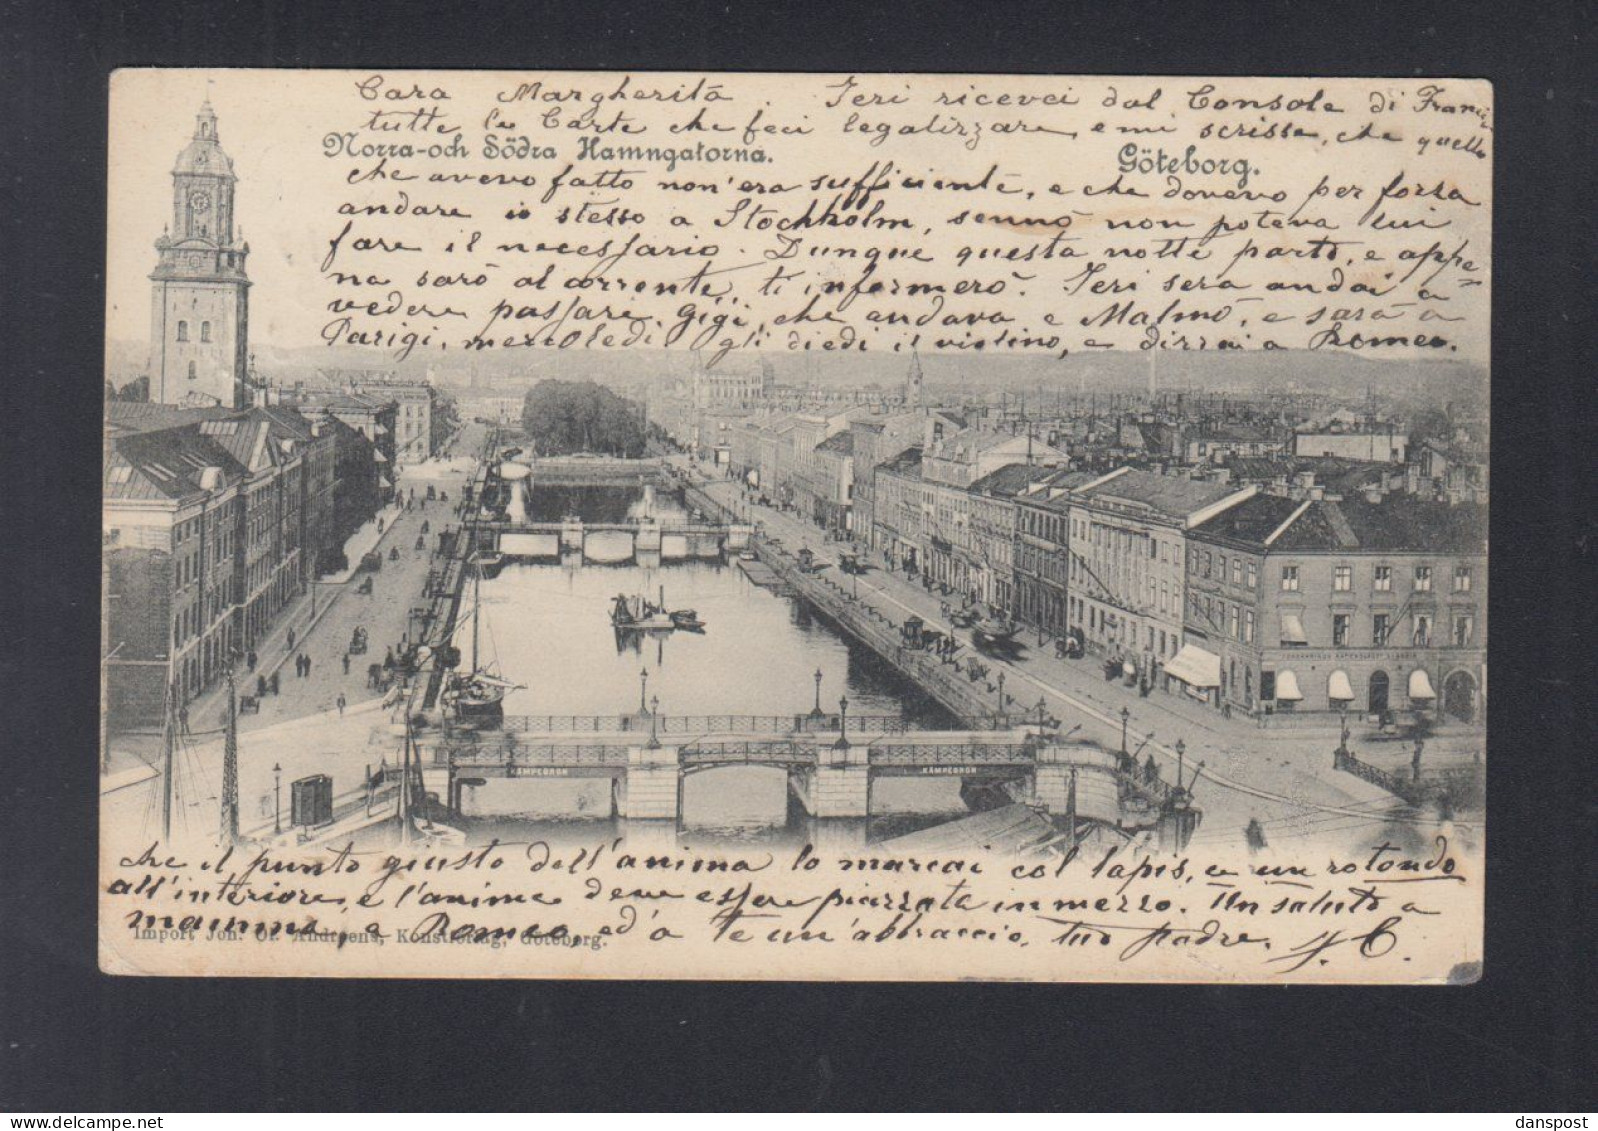 Cara Margherita. Ieri ricevei dal Console di Francia
tutte le Carte che feci legalizzare, e mi scrisse, che quello
Norra- och Södra Hamngatorna. Göteborg.
che avevo fatto non'era sufficiente, e che dovevo per forza
andare io stesso a Stochkolm, sennò non poteva lui
fare il necessario. Dunque questa notte parto, e appe=
na sarò al corrente, ti informerò. Ieri sera andai a
vedere passare Gigi, che andava e Malmö, e sarà a
Parigi, mercoledi gli diedi il violino, e dirrai a Romeo.
KÄMPEBRON KÄMPEBRON
che il punto giusto dell'anima lo marcai col lapis, e un rotondo
all'interiore, e l'anime deve essere piazzata in mezzo. Un saluto a
mamma, e Romeo, ed'à te un'abbraccio, tuo padre. J. C.
Import Joh. Ol. Andreens, Konstförlag, Göteborg.
danspost